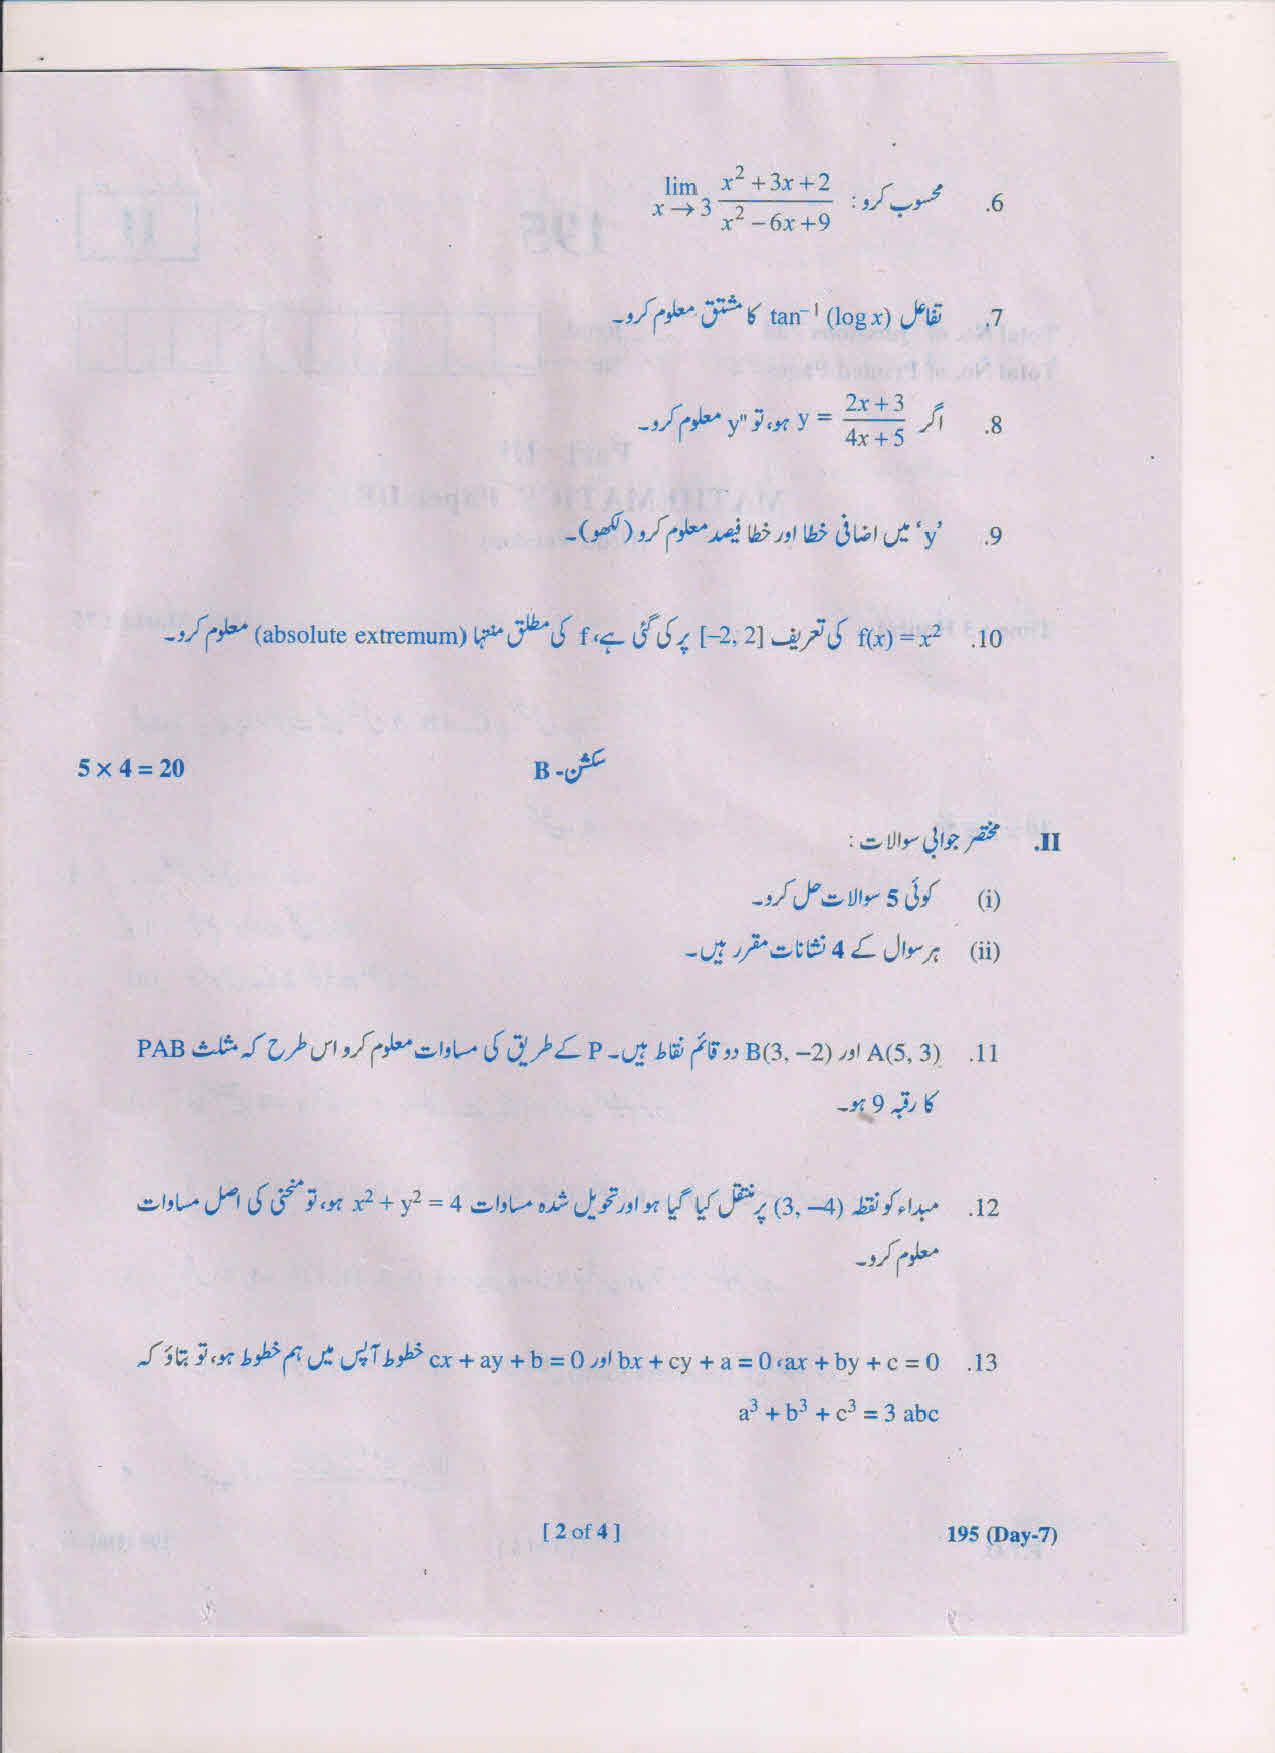 6. محسوب کرو : lim x→3 (x² + 3x + 2)/(x² − 6x + 9)
7. تفاعل tan⁻¹ (log x) کا مشتق معلوم کرو۔
8. اگر y = (2x + 3)/(4x + 5) ہو، تو y" معلوم کرو۔
9. ‘y’ میں اضافی خطا اور خطا فیصد معلوم کرو (لکھو)۔
10. f(x) = x² کی تعریف [–2, 2] پر کی گئی ہے، f کی مطلق منتہا (absolute extremum) معلوم کرو۔
سکشن - B 5 × 4 = 20
II. مختصر جوابی سوالات :
(i) کوئی 5 سوالات حل کرو۔
(ii) ہر سوال کے 4 نشانات مقرر ہیں۔
11. A(5, 3) اور B(3, –2) دو قائم نقاط ہیں۔ P کے طریق کی مساوات معلوم کرو اس طرح کہ مثلث PAB
کا رقبہ 9 ہو۔
12. مبداء کو نقطہ (3, –4) پر منتقل کیا گیا ہو اور تحویل شدہ مساوات x² + y² = 4 ہو، تو منحنی کی اصل مساوات
معلوم کرو۔
13. ax + by + c = 0، bx + cy + a = 0 اور cx + ay + b = 0 خطوط آپس میں ہم خطوط ہو، تو بتاؤ کہ
a³ + b³ + c³ = 3 abc
195 (Day-7) [ 2 of 4 ]